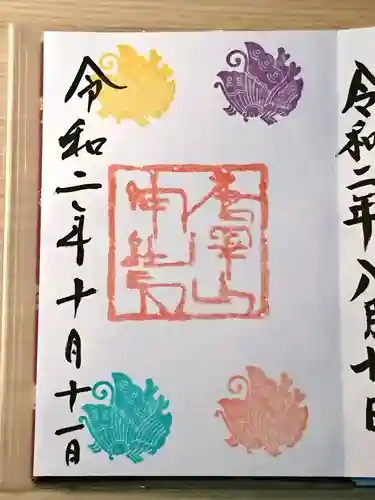 令和二年八月十日
神社
令和二年十月十一日